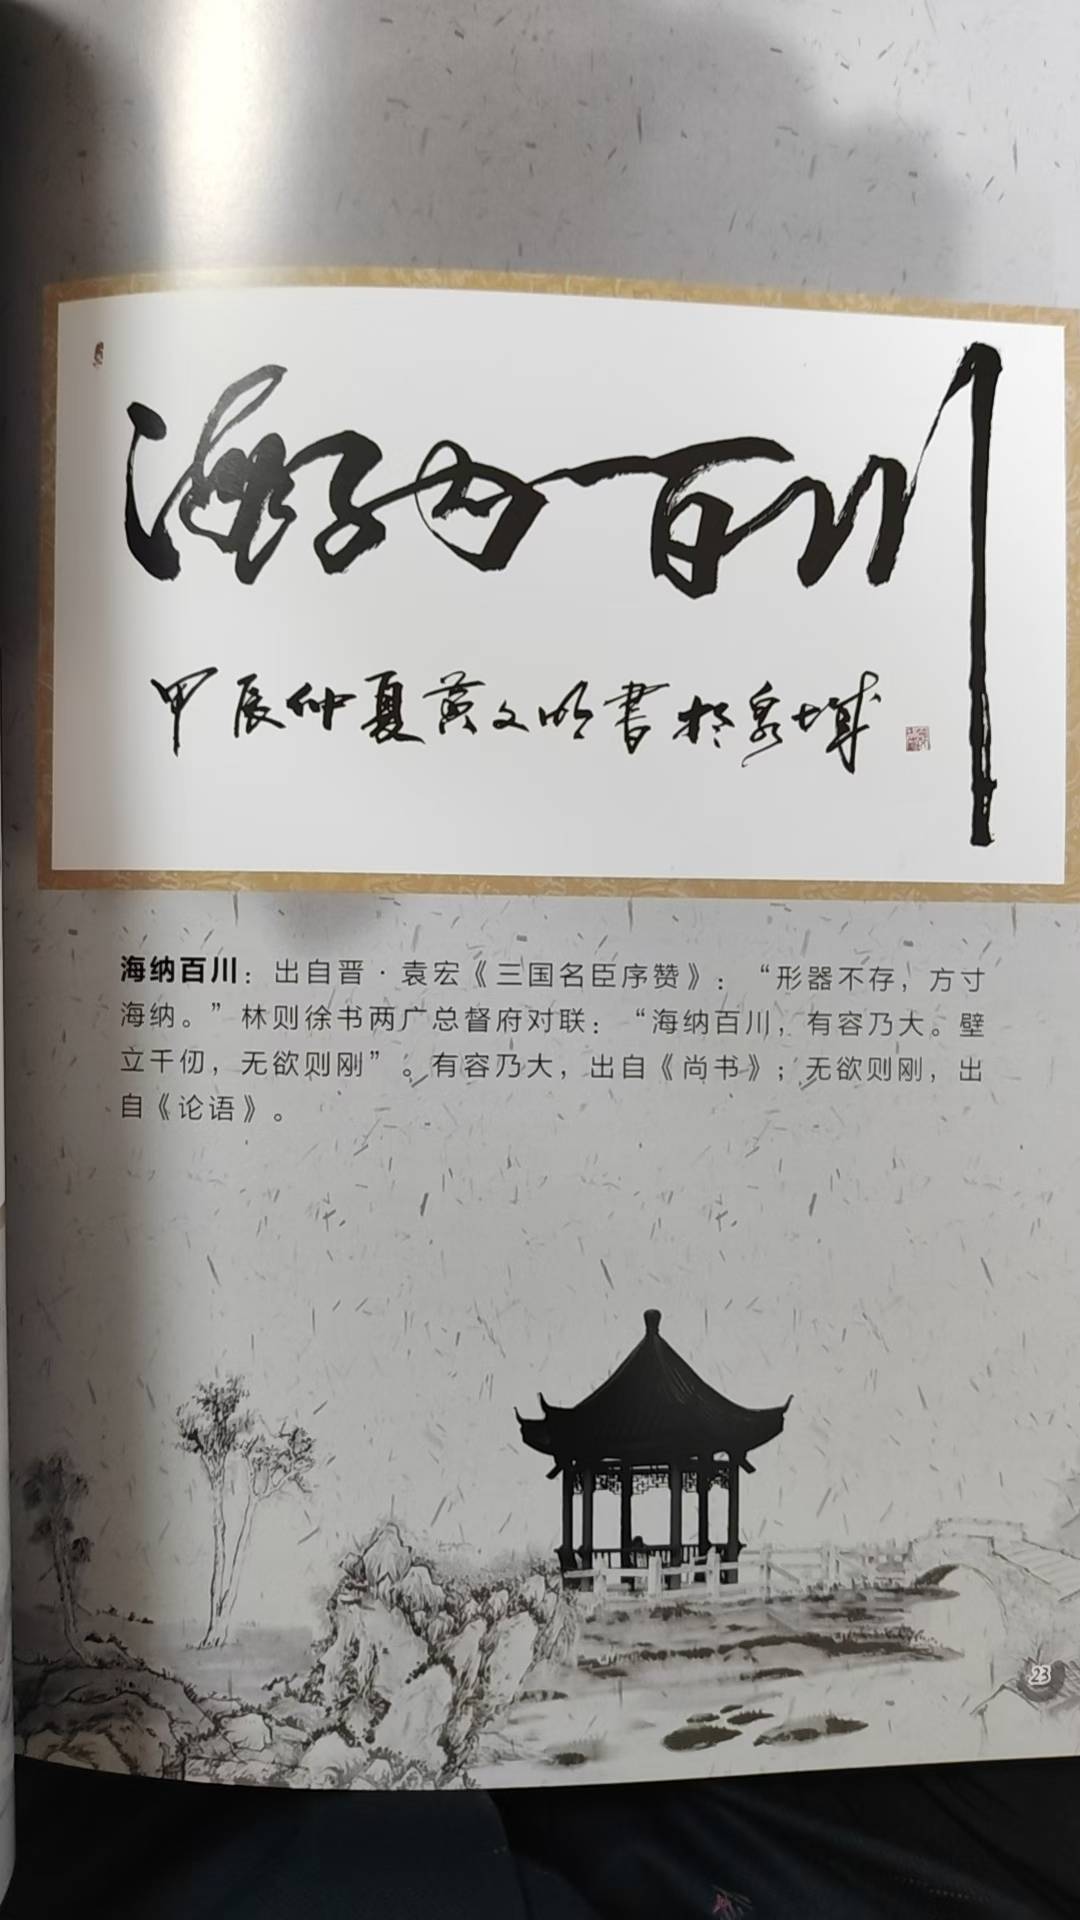 海纳百川
甲辰仲夏黄文明书于泉城
海纳百川：出自晋·袁宏《三国名臣序赞》：“形器不存，方寸
海纳。”林则徐书两广总督府对联：“海纳百川，有容乃大。壁
立千仞，无欲则刚”。有容乃大，出自《尚书》；无欲则刚，出
自《论语》。
23